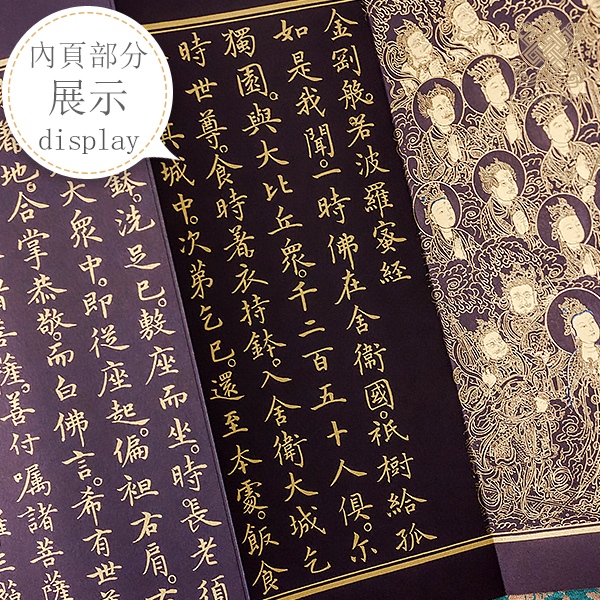 內頁部分
展示
display
金剛般若波羅蜜經
如是我聞。一時佛在舍衛國。祇樹給孤
獨園。與大比丘眾。千二百五十人俱。尔
時世尊。食時著衣持鉢。入舍衛大城乞
其城中。次第乞已。還至本處。飯食
鉢。洗足已。敷座而坐。時長老須
大眾中。即從座起。偏袒右肩。
著地。合掌恭敬。而白佛言。希有世
諸菩薩。善付囑諸菩薩